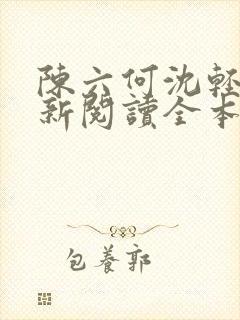 陳六何沈輕
新閱讀全本
包養郭